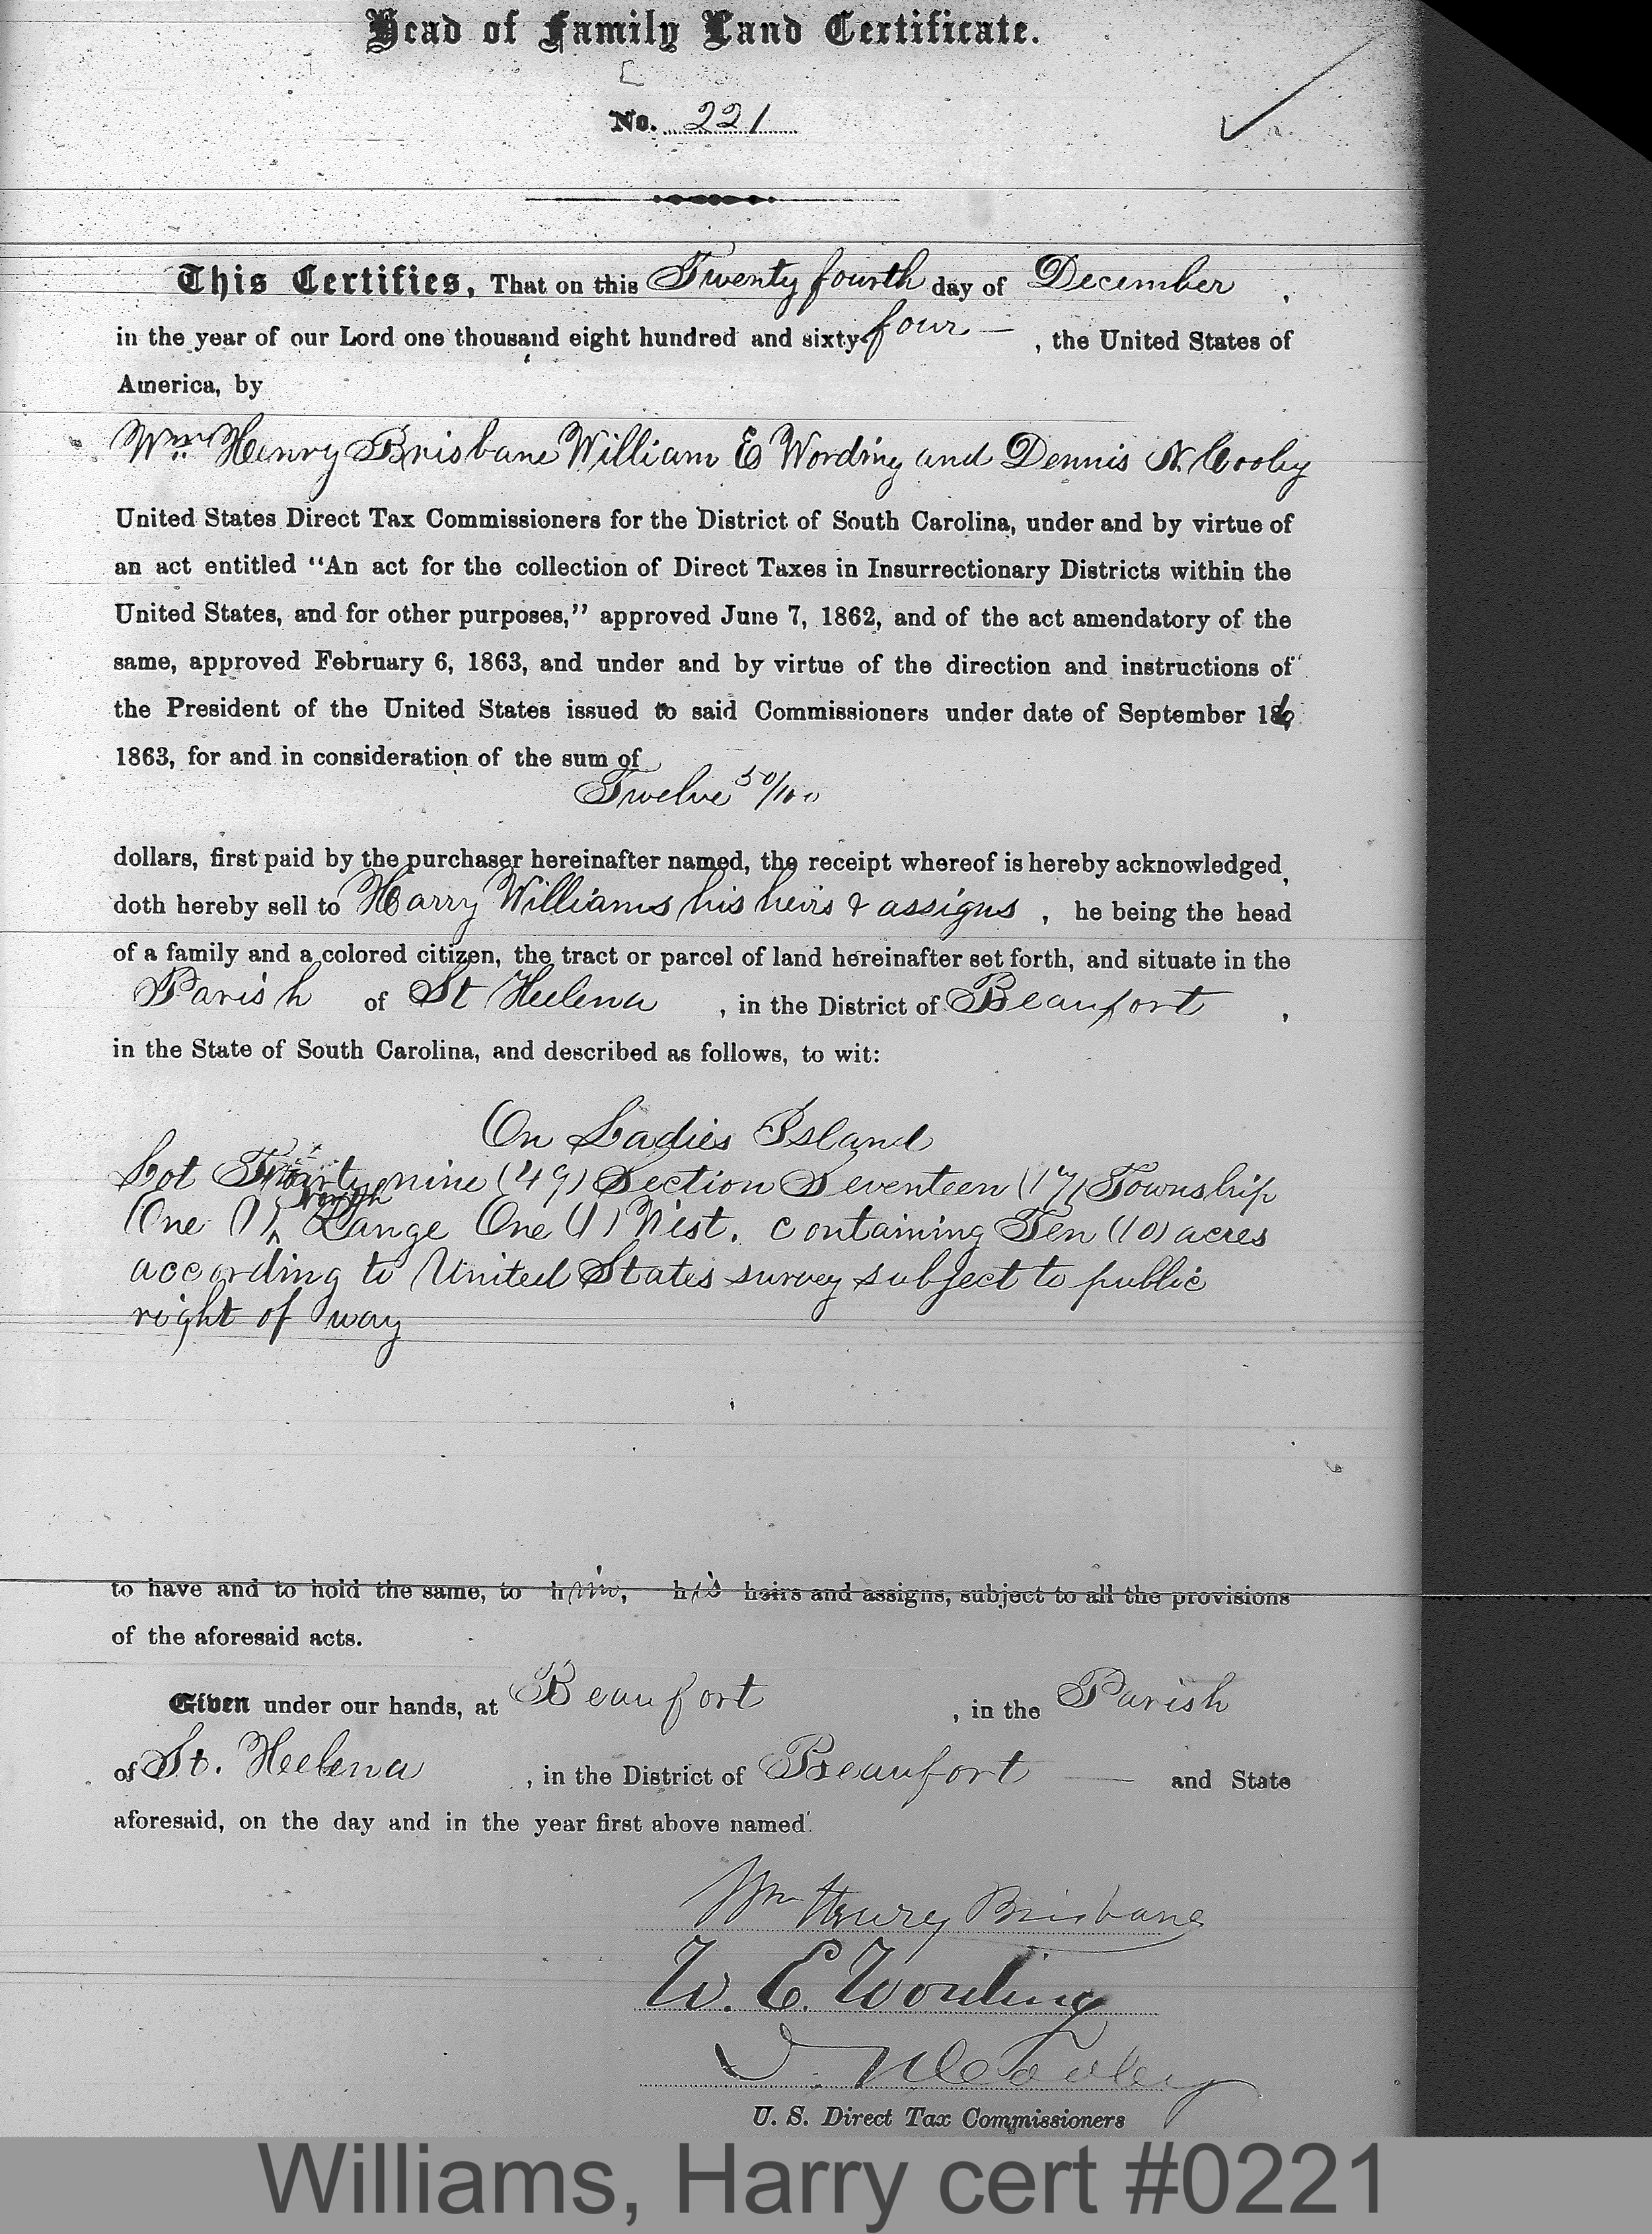 Head of Family Land Certificate.
No. 221
This Certifies, That on this Twenty fourth day of December,
in the year of our Lord one thousand eight hundred and sixty four —, the United States of
America, by
Wm Henry Brisbane William E Wording and Dennis N. Cooley
United States Direct Tax Commissioners for the District of South Carolina, under and by virtue of
an act entitled “An act for the collection of Direct Taxes in Insurrectionary Districts within the
United States, and for other purposes,” approved June 7, 1862, and of the act amendatory of the
same, approved February 6, 1863, and under and by virtue of the direction and instructions of
the President of the United States issued to said Commissioners under date of September 16,
1863, for and in consideration of the sum of
Twelve 50/100
dollars, first paid by the purchaser hereinafter named, the receipt whereof is hereby acknowledged,
doth hereby sell to Harry Williams his heirs & assigns, he being the head
of a family and a colored citizen, the tract or parcel of land hereinafter set forth, and situate in the
Parish of St Helena, in the District of Beaufort,
in the State of South Carolina, and described as follows, to wit:
On Ladies Island
Lot nine (49) Section Seventeen (17) Township
One (1) North Range One (1) West. containing Ten (10) acres
according to United States survey subject to public
right of way
to have and to hold the same, to him, his heirs and assigns, subject to all the provisions
of the aforesaid acts.
Given under our hands, at Beaufort, in the Parish
of St. Helena, in the District of Beaufort — and State
aforesaid, on the day and in the year first above named.
Wm Henry Brisbane
W. E. Wording
D. N. Cooley
U. S. Direct Tax Commissioners
Williams, Harry cert #0221